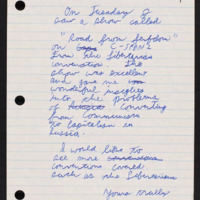 On Tuesday I
saw a show called
"Road from Serfdom"
on C-SPAN 2
from the Libertarian
convention. The
show was excellent
and gave me
wonderful insights
into the problems
of converting
from Communism
to Capitalism in
Russia.
I would like to
see more
conventions covered
such as the Libertarian
Yours truly